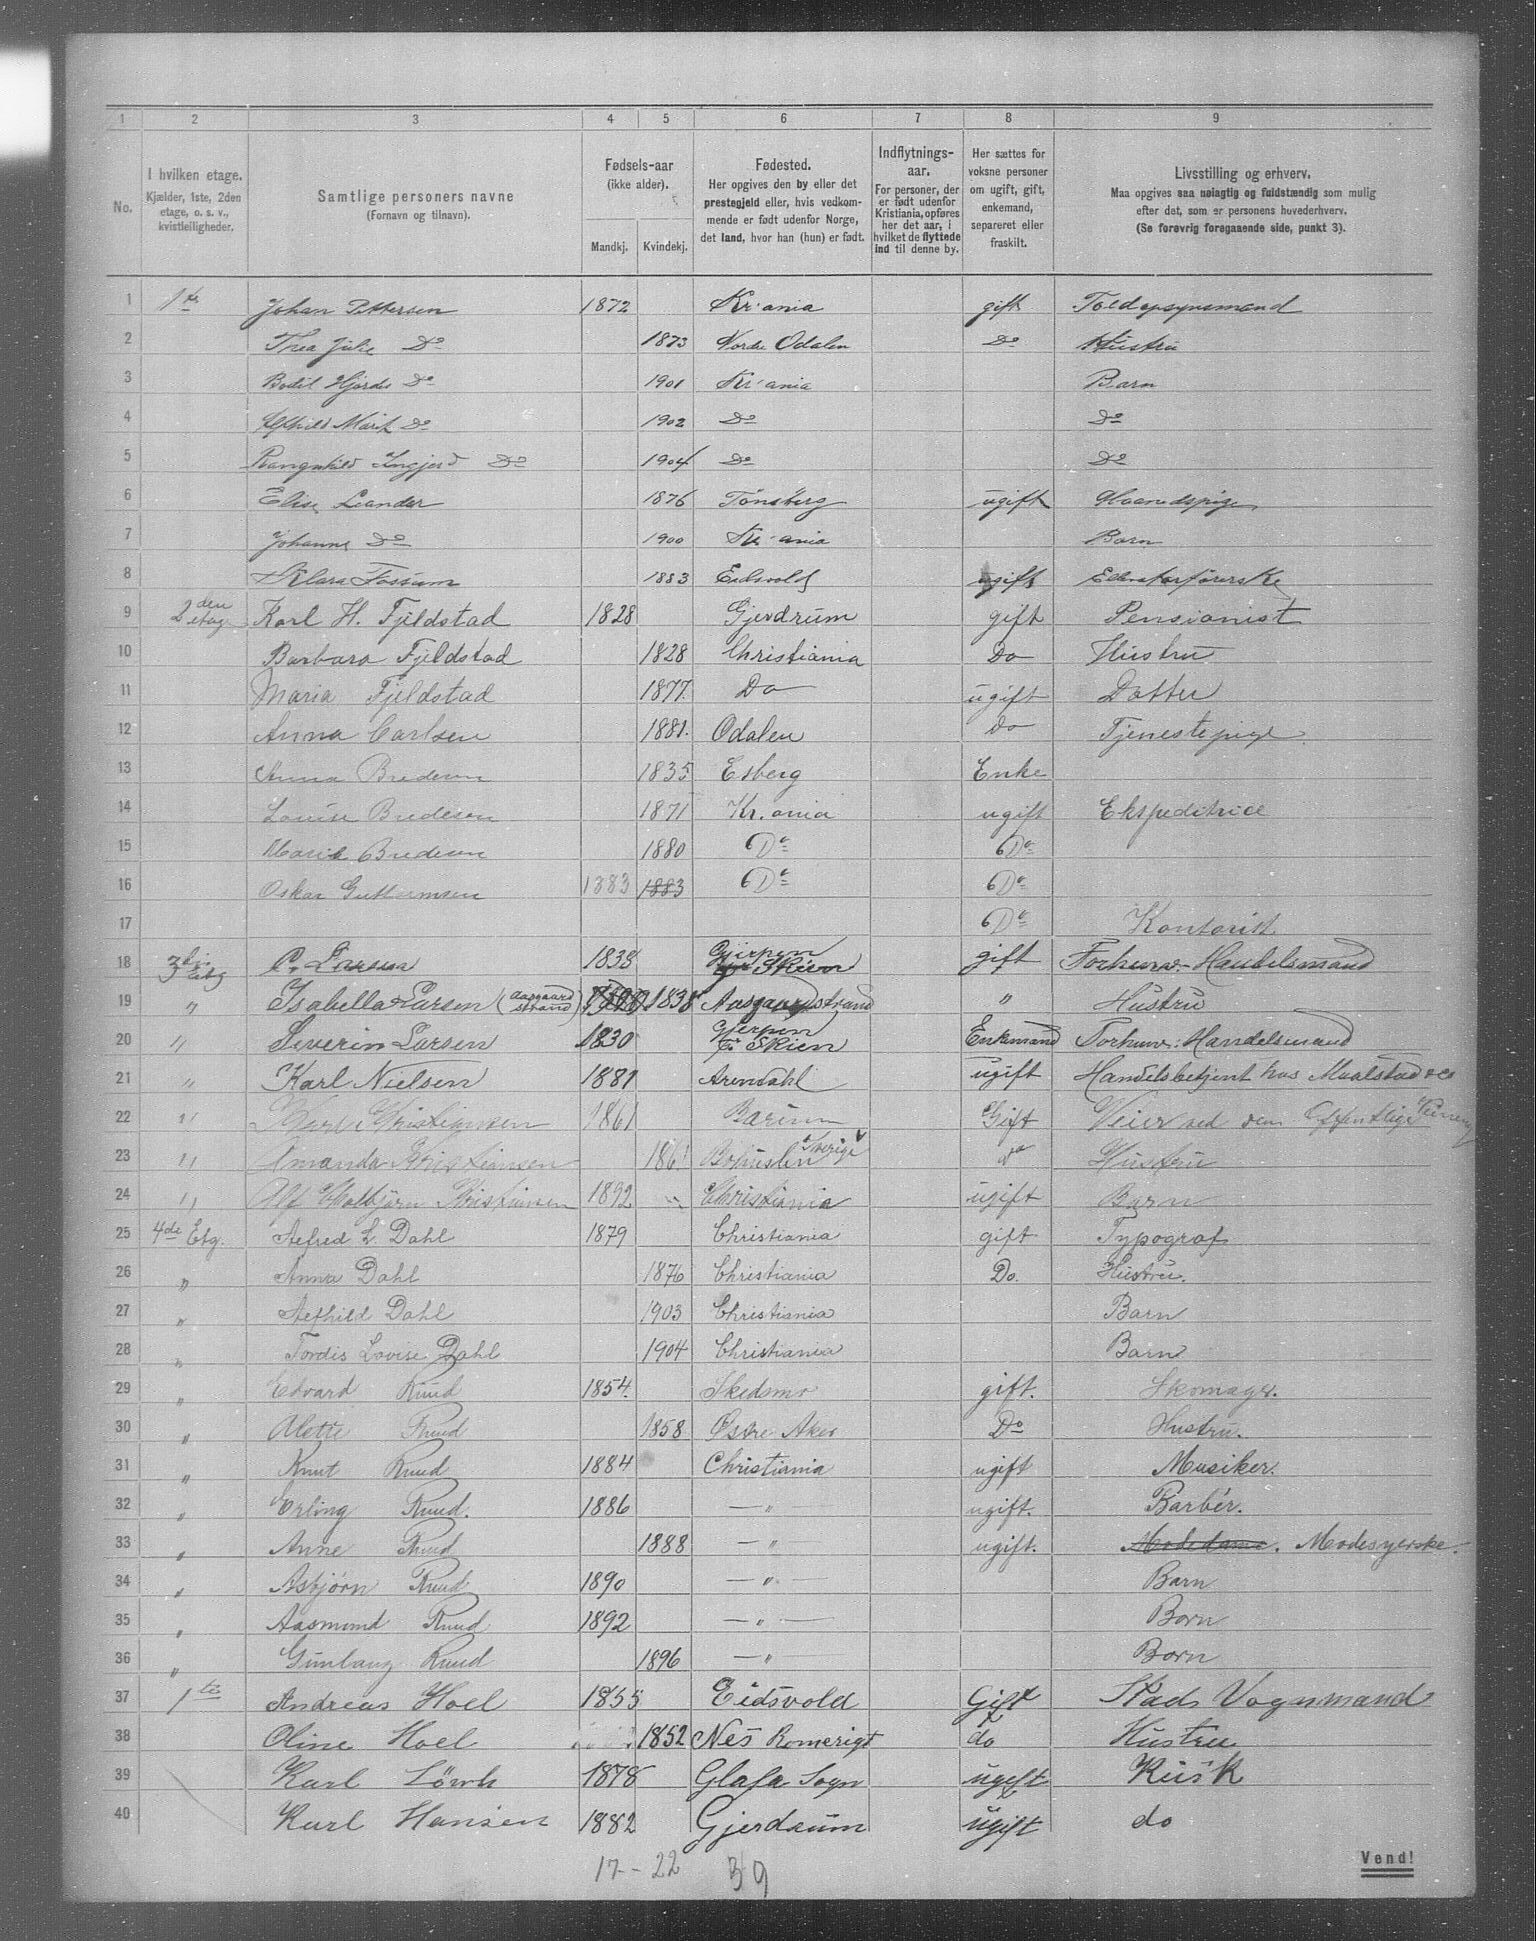 1 2 3 4 5 6 7 8 9
No. I hvilken etage. Kjælder, 1ste, 2den etage, o. s. v., kvistleiligheder. Samtlige personers navne (Fornavn og tilnavn). Fødsels-aar (ikke alder). Mandkj. Kvindekj. Fødested. Her opgives den by eller det prestegjeld eller, hvis vedkommende er født udenfor Norge, det land, hvor han (hun) er født. Indflytnings-aar. For personer, der er født udenfor Kristiania, opføres her det aar, i hvilket de flyttede ind til denne by. Her sættes for voksne personer om ugift, gift, enkemand, separeret eller fraskilt. Livsstilling og erhverv. Maa opgives saa nøiagtig og fuldstændig som mulig efter det, som er personens hovederhverv. (Se forøvrig foregaaende side, punkt 3).
1 1te Johan Pettersen 1872 Kr:ania gift Toldopsynsmand
2 Thea Julie Do 1873 Nordre Odalen Do Hustru
3 Bodil Hjørdis Do 1901 Kr:ania Barn
4 Alfhild Marit Do 1902 Do Do
5 Rangnhild Ingjerd Do 1904 Do Do
6 Elise Leander 1876 Tønsberg ugift
7 Johanne Do 1900 Kr:ania Barn
8 Klara Fossum 1883 Eidsvold ugift
9 2den etag Karl H. Fjeldstad 1828 Gjerdrum gift Pensionist
10 Barbara Fjeldstad 1828 Christiania Do Hustru
11 Maria Fjeldstad 1877. Do ugift Datter
12 Anna Carlsen 1881. Odalen Do Tjenestepige.
13 Anna Bredesen 1835 Esberg Enke
14 Louise Bredesen 1871 Kr.ania ugift Ekspeditrice
15 Marie Bredesen 1880 Do Do
16 Oskar Guttormsen 1883 1883 Do Do
17 Do Kontorist
18 3die Etg C. Larsen 1838 Gjerpen pr Skien gift Forhenv. Handelsmand
19 " Isabella Larsen (Aasgaardstrand) 1838 Aasgaardstrand " Hustru
20 " Severin Larsen 1830 Gjerpen pr Skien Enkemand Forhenv: Handelsmand
21 " Karl Nielsen 1881 Arendahl ugift Handelsbetjent hos Maalstad & Co
22 " Karl Kristiansen 1861 Bærum Gift Veier ved den Offentlige
23 " Amanda Kristiansen 1861 Bohuslen Sverige do Hustru
24 " Alf Kristiansen 1892 " Christiania ugift Barn
25 4de Etg. Alfred L. Dahl 1879 Christiania gift Typograf
26 " Anna Dahl 1876 Christiania Do. Hustru.
27 " Alfhild Dahl 1903 Christiania Barn
28 " Tordis Lovise Dahl 1904 Christiania Barn
29 " Edvard Ruud 1854. Skedsmo gift. Skomager.
30 " Alette Ruud 1858 Østre Aker Do Hustru.
31 " Knut Ruud 1884 Christiania ugift Musiker.
32 " Erling Ruud. 1886 — " — ugift. Barbér.
33 " Anne Ruud 1888 — " — ugift. Modedame. Modesyerske.
34 " Asbjørn Ruud 1890 — " — Barn
35 " Aasmund Ruud 1892 — " — Barn
36 " Gunlaug Ruud 1896 — " Barn
37 1te Andreas Hoel 1855 Eidsvold Gift Stads Vognmand
38 Oline Hoel 1852 Nes Romerigt do Hustru
39 Karl 1878 Sogn ugift Kusk
40 Karl Hansen 1882 Gjerdrum ugift do
17 - 22 39
Vend!